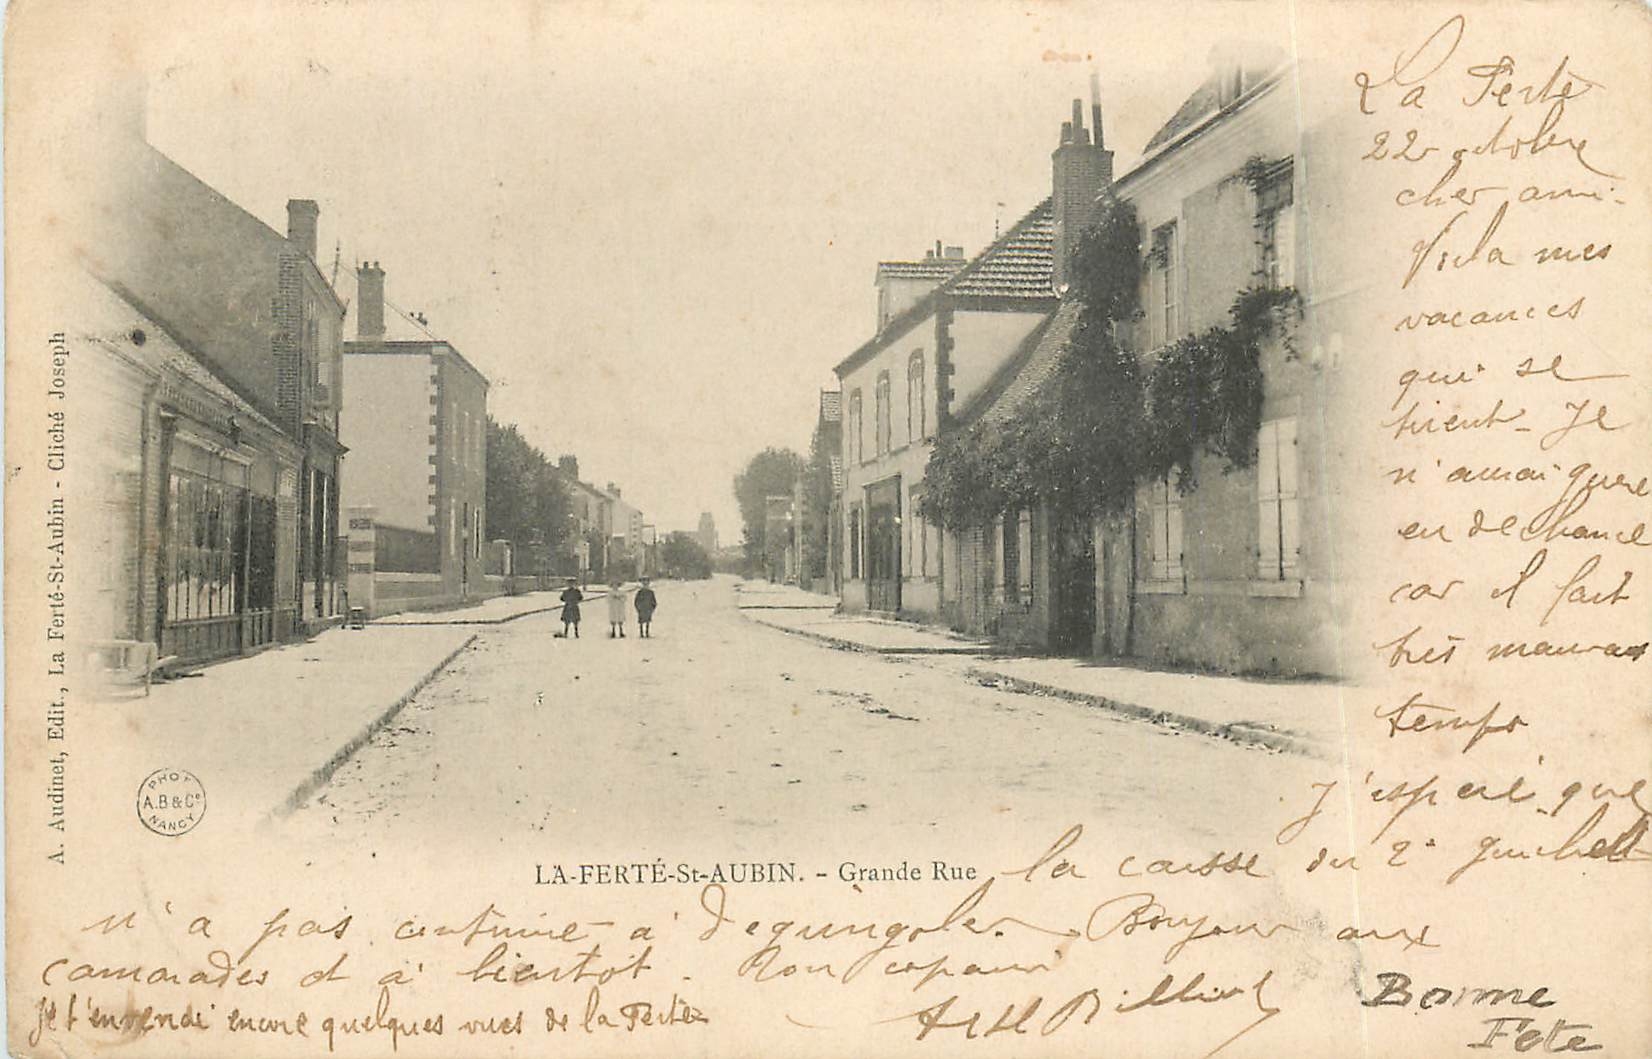 La Ferté
22 octobre
cher ami.
Voila mes
vacances
qui se
tirent. Je
n'aurai guere
eu de chance
car il fait
très mauvais
temps
J'espere que
la caisse du 2e guichet
n'a pas continué à degringoler. Bonjour aux
camarades et a bientôt. Ton copain
Je t'enverrai encore quelques vues de la Ferté
Bonne
Fete
LA-FERTÉ-St-AUBIN. - Grande Rue
A. Audinet, Edit., La Ferté-St-Aubin - Cliché Joseph
PHOT
A.B & Cie
NANCY